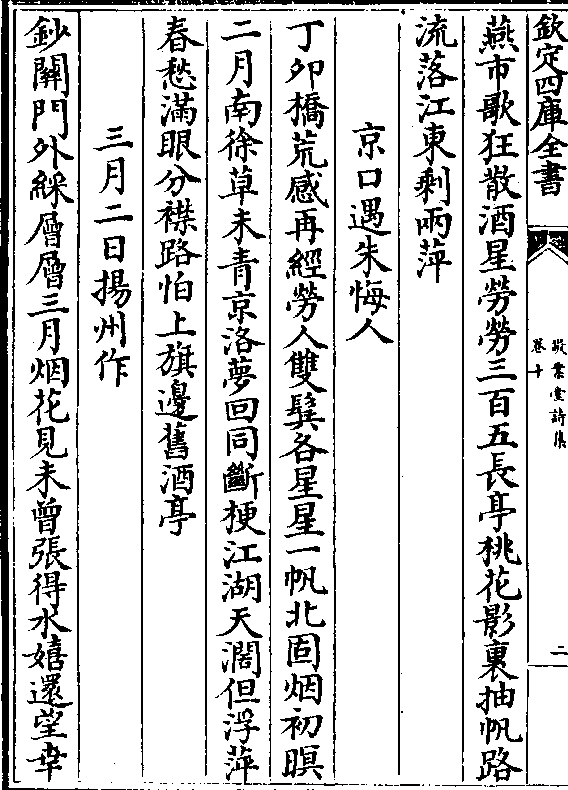 欽定四庫全書
敬業堂詩集
卷十
二
燕市歌狂散酒星勞勞三百五長亭桃花影裏抽帆路
流落江東剩兩萍
京口遇朱悔人
丁卯橋荒感再經勞人雙鬂各星星一帆北固烟初暝
二月南徐草未青京洛夢回同斷梗江湖天濶但浮萍
春愁滿眼分襟路怕上旗邊舊酒亭
三月二日揚州作
鈔關門外綵層層三月烟花見未曾張得水嬉還望幸